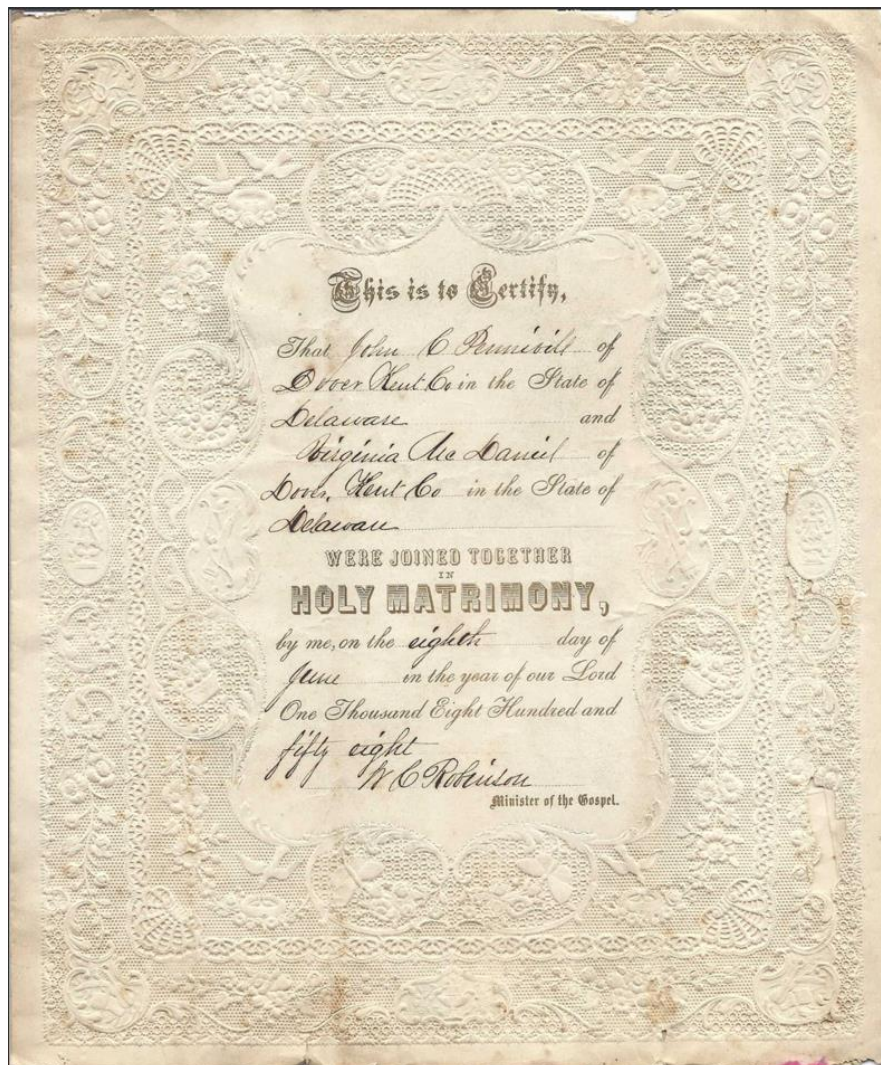 This is to Certify,
That John C Pennivill of
Dover Kent Co in the State of
Delaware and
Virginia Mc Daniel of
Dover, Kent Co in the State of
Delaware
WERE JOINED TOGETHER
IN
HOLY MATRIMONY,
by me, on the eighth day of
June in the year of our Lord
One Thousand Eight Hundred and
fifty eight
W C Robinson
Minister of the Gospel.